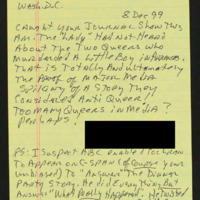 Wash. D.C.
8 Dec 99
Caught your Journal show this
AM. The "Lady" had not heard
about the two queers who
murdered a little boy in
That is totally and
the of major media
of a story they
considered "Anti Queer"!
Too many queers in media?
Perhaps!
PS: I suspect ABC
to appear on C-SPAN (of course your
unbiased) to "answer" the dinner
party story. He did everything but
answer "What really happened". He twisted